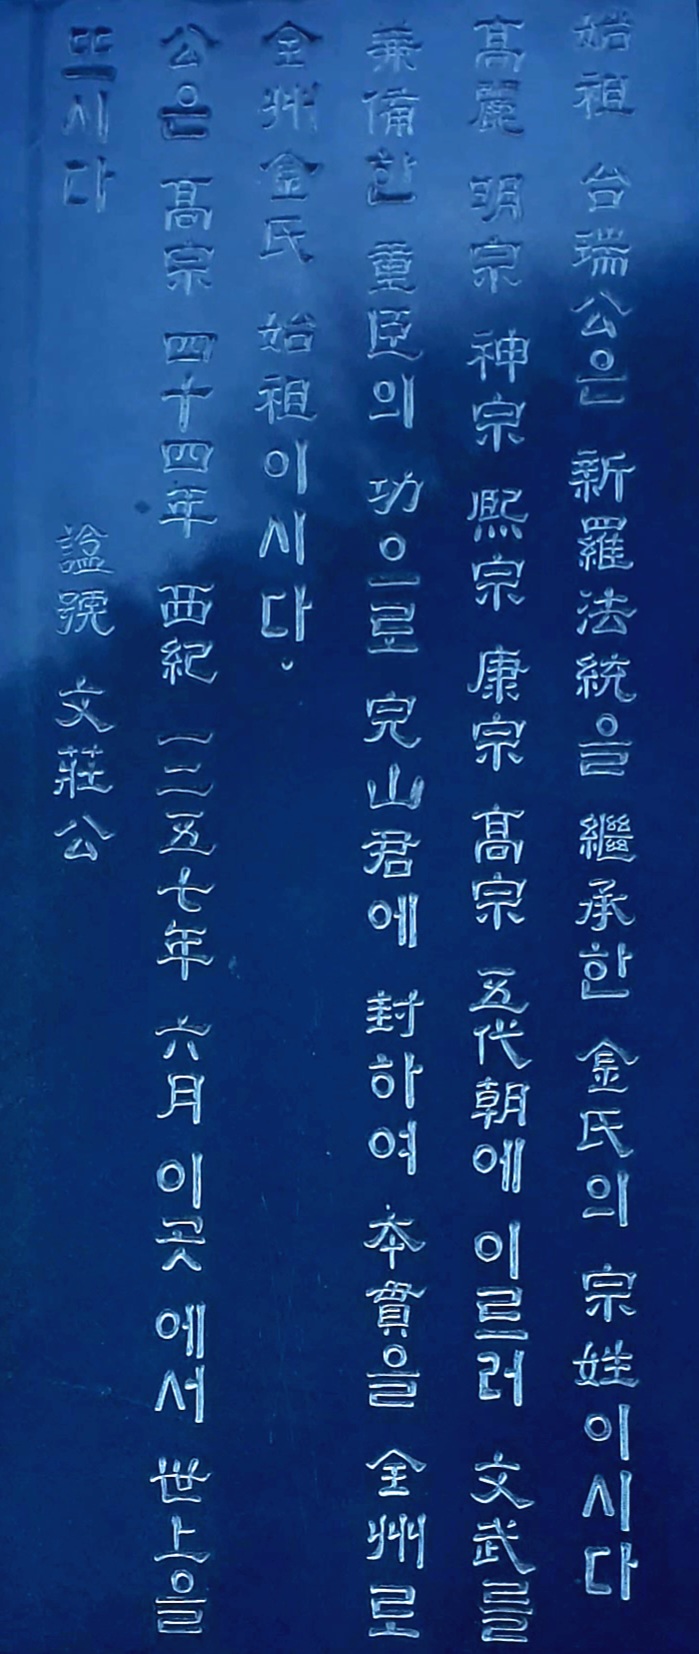 始祖 台瑞公은 新羅法統을 繼承한 金氏의 宗姓이시다
高麗 明宗 神宗 熙宗 康宗 高宗 五代朝에 이르러 文武를
兼備한 重臣의 功으로 完山君에 封하여 本貫을 全州로
全州金氏 始祖이시다.
公은 高宗 四十四年 西紀 一二五七年 六月 이곳에서 世上을
뜨시다 諡號 文莊公